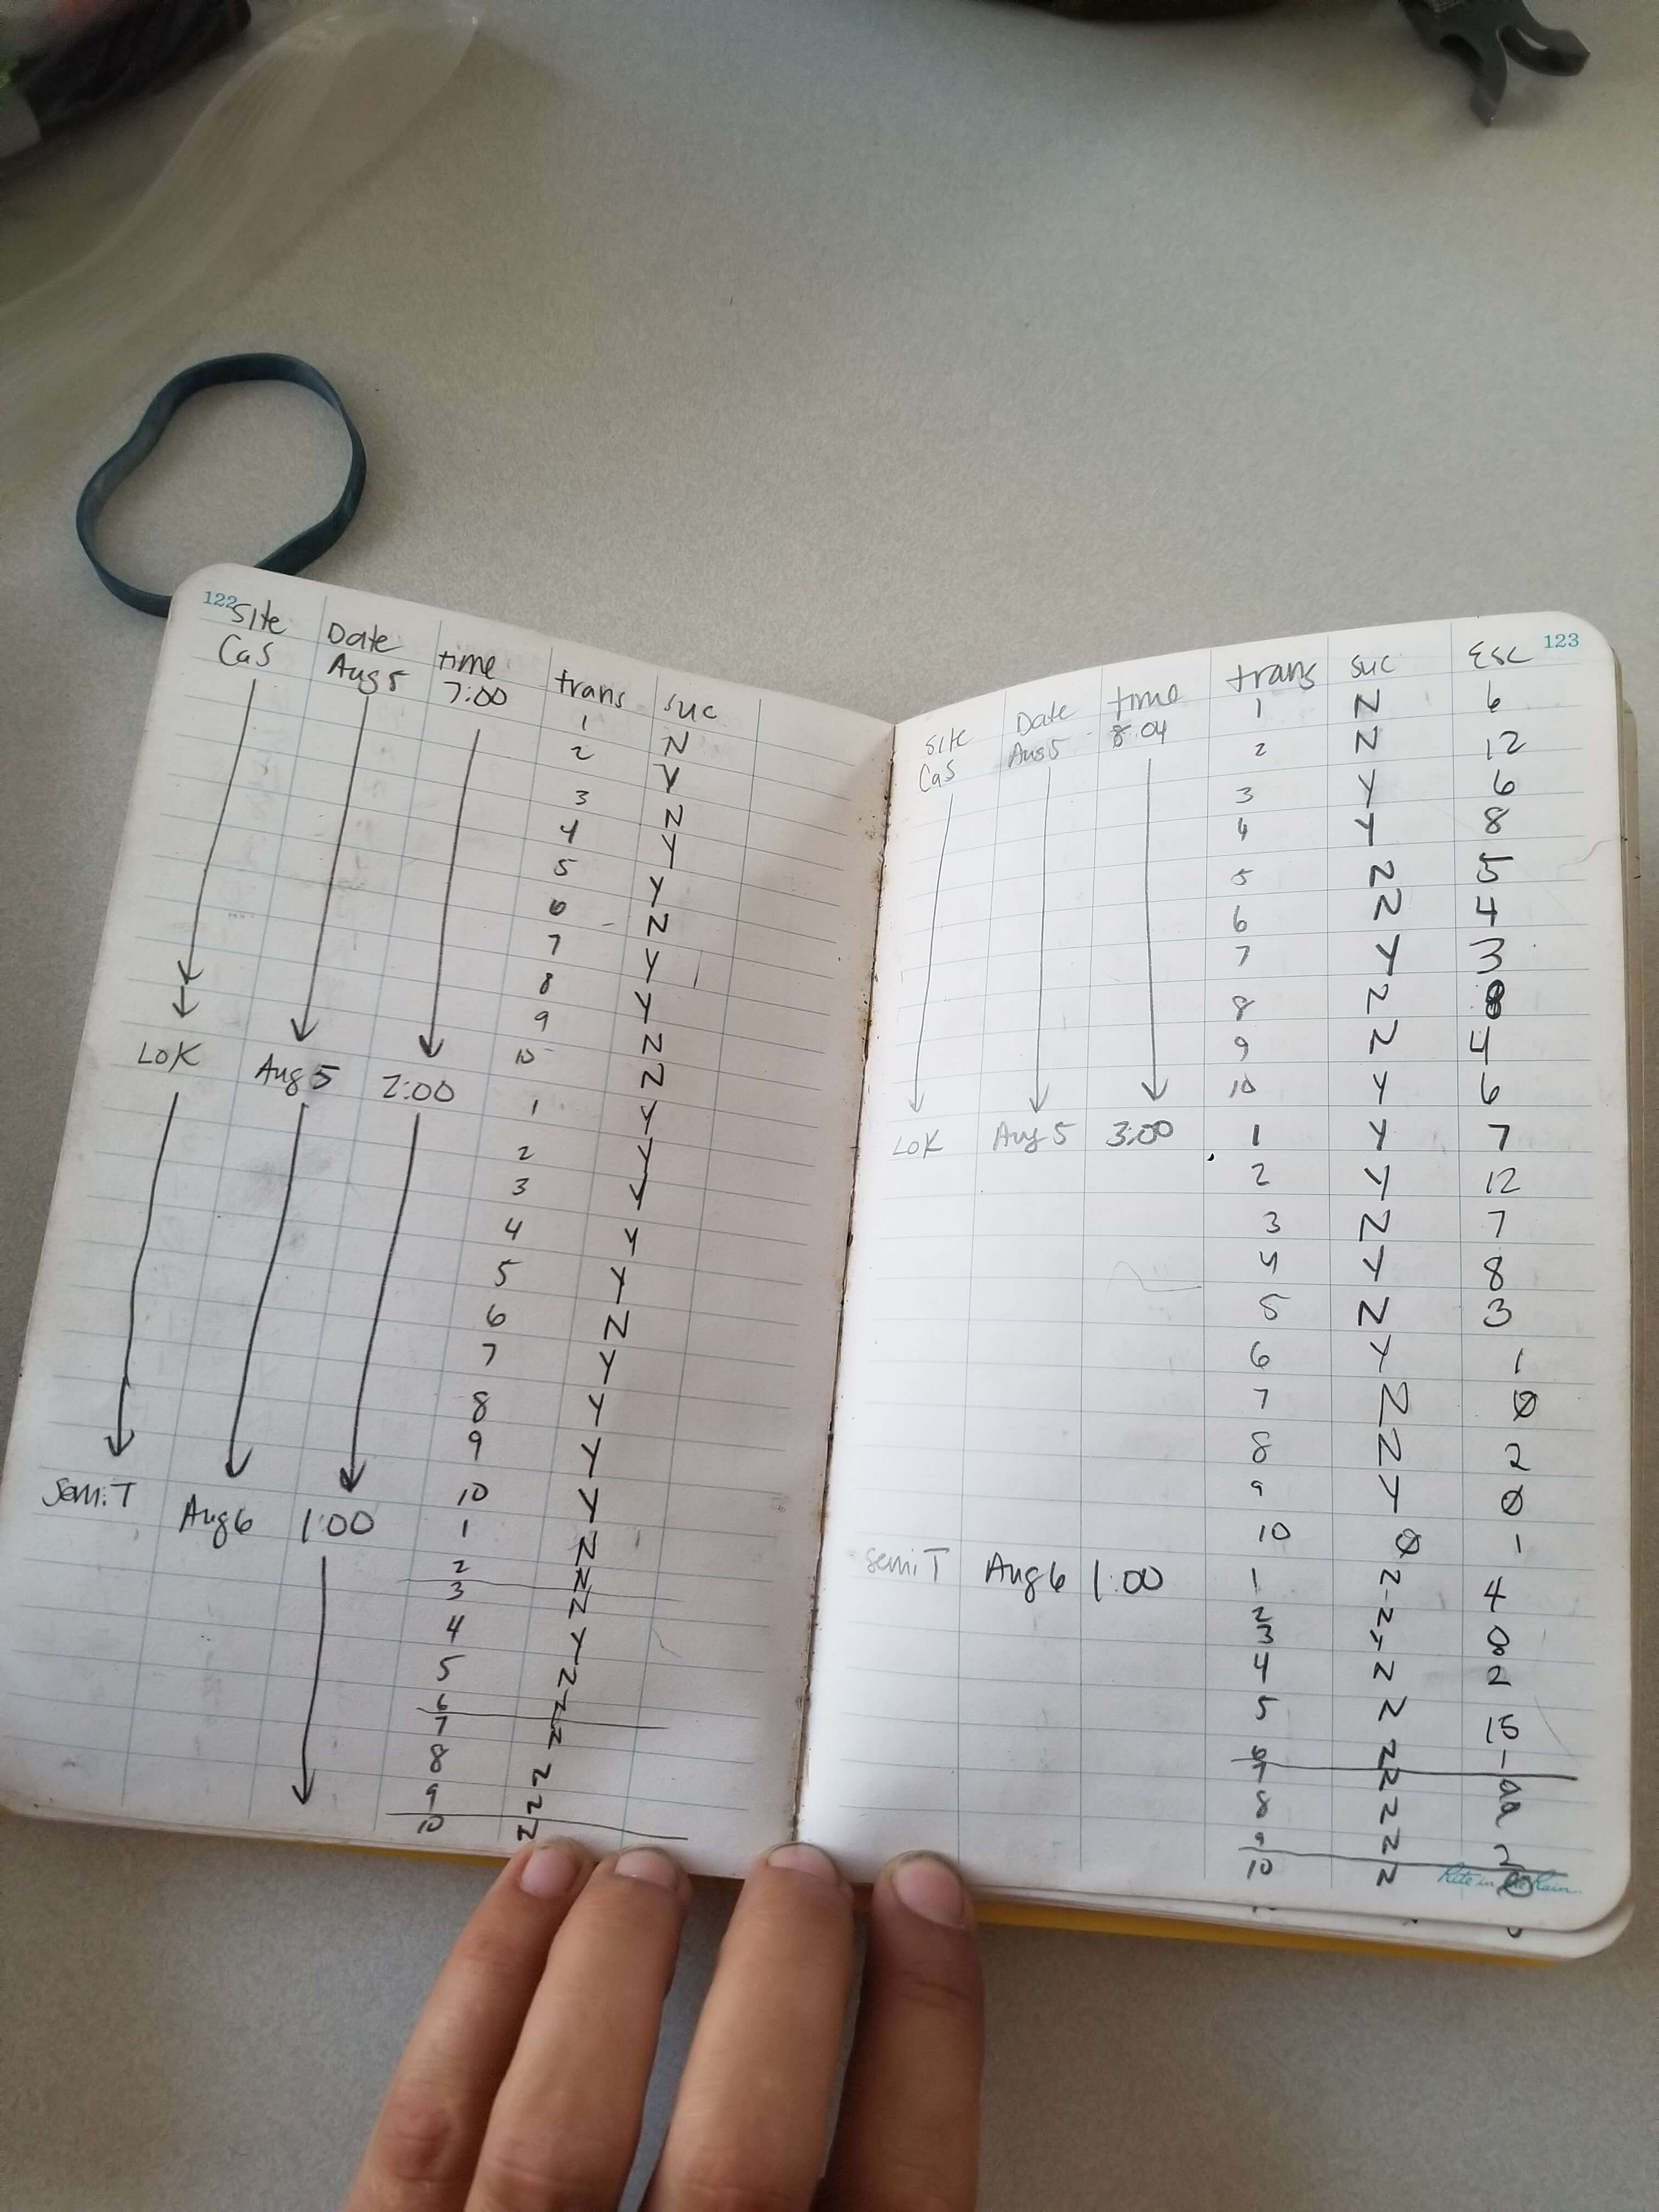 122
Site Date time trans suc
CaS Aug 5 7:00 1 N
2 Y
3 N
4 Y
5 Y
6 N
7 Y
8 Y
9 N
10 N
LOK Aug 5 2:00 1 Y
2 Y
3 Y
4 Y
5 Y
6 N
7 Y
8 Y
9 Y
10 Y
Semi T Aug 6 1:00 1 N
2 N
3 N
4 Y
5 N
6 N
7 N
8 N
9 N
10 N
123
Site Date time trans suc Esc
CaS Aug 5 8:04 1 N 6
2 N 12
3 Y 6
4 Y 8
5 N 5
6 N 4
7 Y 3
8 N 8
9 N 4
10 Y 6
LOK Aug 5 3:00 1 Y 7
2 Y 12
3 N 7
4 Y 8
5 N 3
6 Y 1
7 N Ø
8 N 2
9 Y Ø
10 Ø 1
Semi T Aug 6 1:00 1 N 4
2 N
3 Y 8
4 N 2
5 N 15
6 N 1
7 N
8 N
9 N 2
10 N
Rite in the Rain